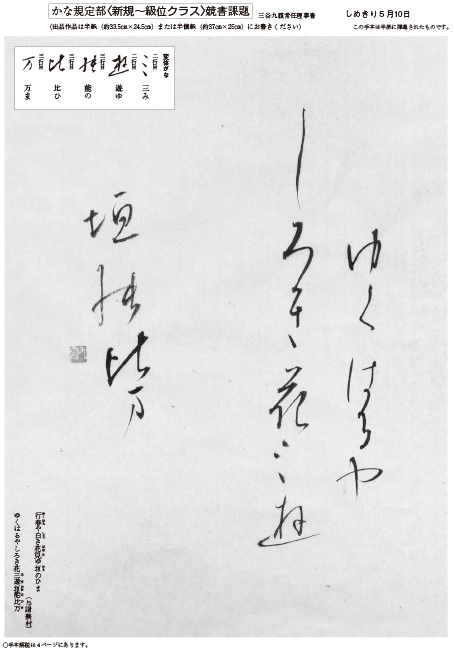 かな規定部〈新規～級位クラス〉競書課題
しめきり５月10日
(出品作品は半紙（約33.5cm×24.5cm）または半懐紙（約37cm×25cm）にお書きください)
この手本は半紙に揮毫されたものです。
変体がな
三み
遊ゆ
能の
比ひ
万ま
ゆくはるや
しろき花三遊
垣能
比万
行春や白き花見ゆ垣のひま
（与謝蕪村）
ゆくはるやしろき花三遊垣能比万
〇手本解説は４ページにあります。